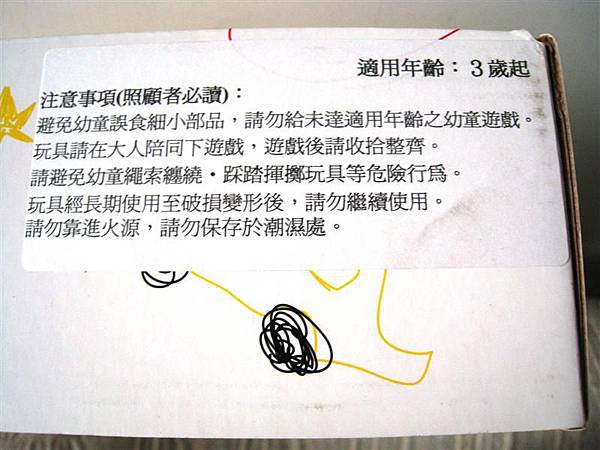 適用年齡：3歲起
注意事項(照顧者必讀)：
避免幼童誤食細小部品，請勿給未達適用年齡之幼童遊戲。
玩具請在大人陪同下遊戲，遊戲後請收拾整齊。
請避免幼童繩索纏繞‧踩踏揮擲玩具等危險行為。
玩具經長期使用至破損變形後，請勿繼續使用。
請勿靠進火源，請勿保存於潮濕處。